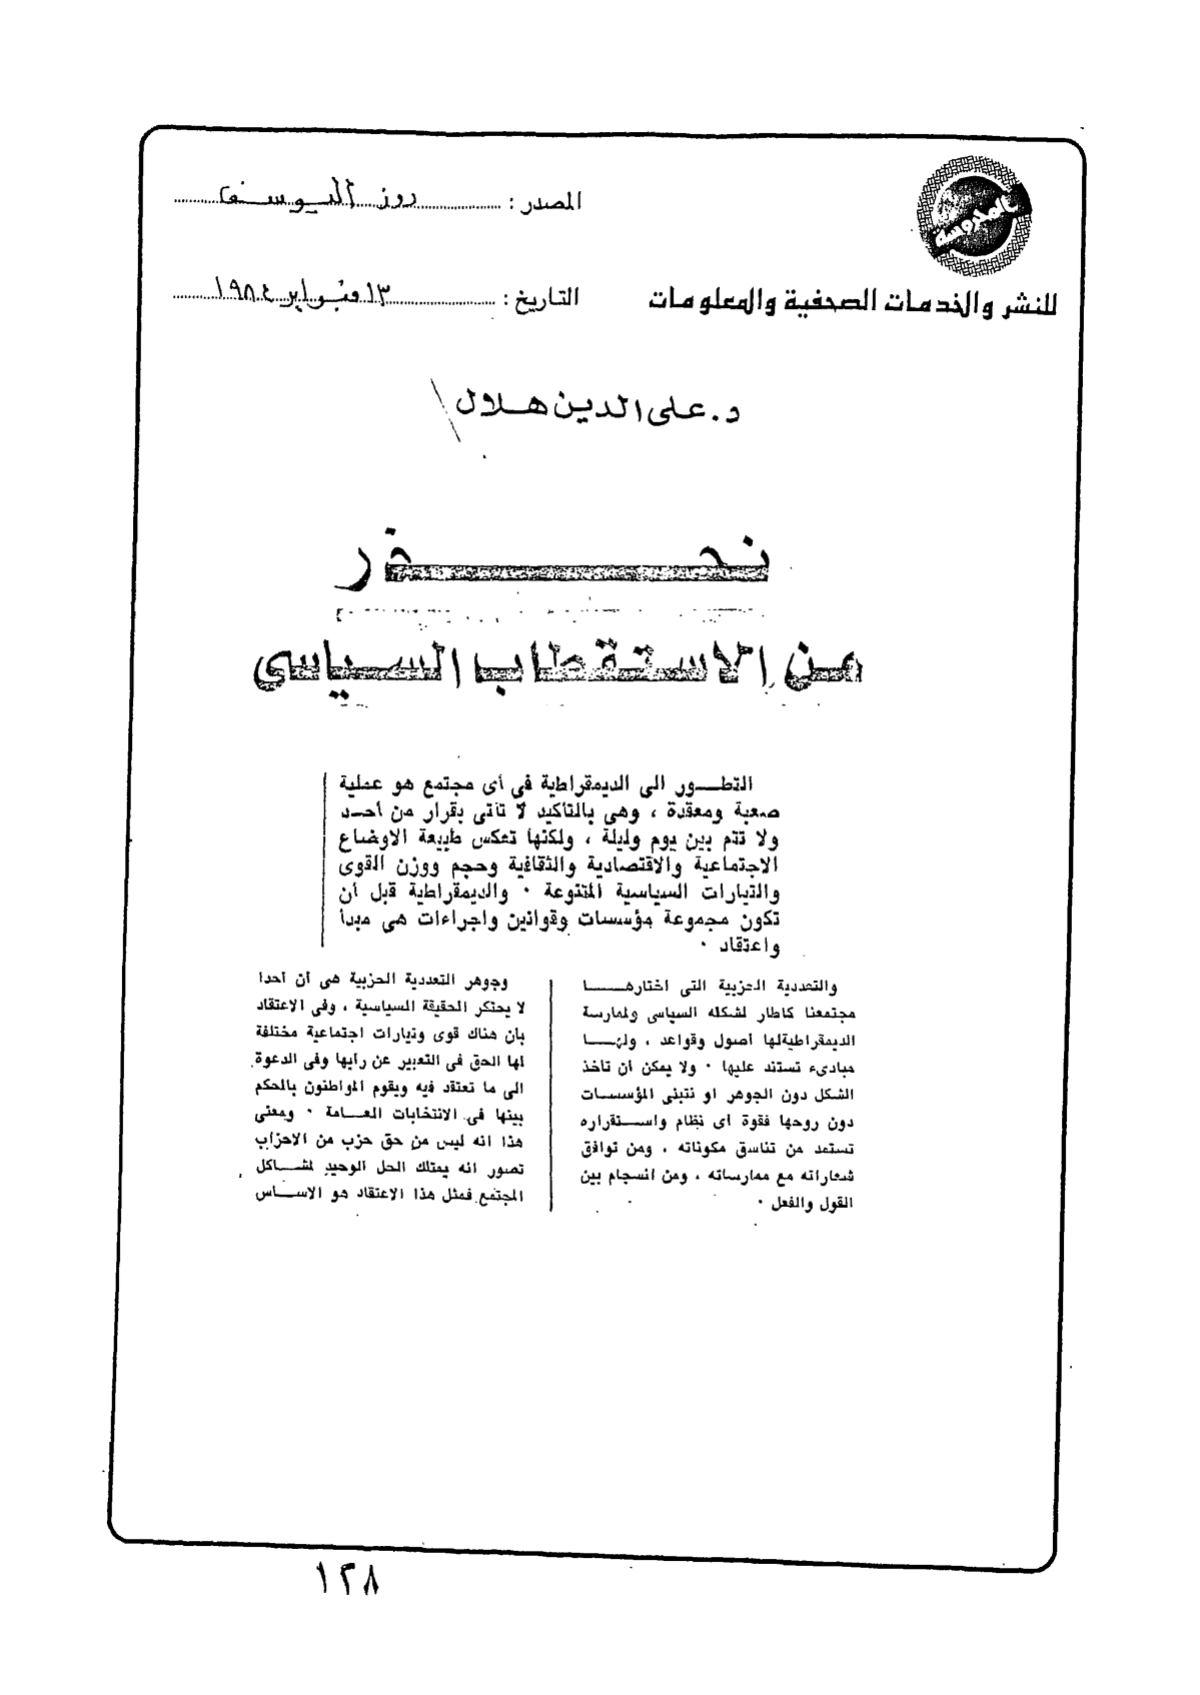 المصدر : روز اليوسف
التاريخ : ١٣ فبراير ١٩٨٤
للنشر والخدمات الصحفية والمعلومات
د. على الدين هلال
نحذر
من الاستقطاب السياسى
التطــور الى الديمقراطية فى أى مجتمع هو عملية
صعبة ومعقدة ، وهى بالتأكيد لا تأتى بقرار من أحــد
ولا تتم بين يوم وليلة ، ولكنها تعكس طبيعة الاوضاع
الاجتماعية والاقتصادية والثقافية وحجم ووزن القوى
والتيارات السياسية المتنوعة ٠ والديمقراطية قبل أن
تكون مجموعة مؤسسات وقوانين واجراءات هى مبدأ
واعتقاد ٠
والتعددية الحزبية التى اختارهــا
مجتمعنا كاطار لشكله السياسى ولممارسة
الديمقراطيةلها أصول وقواعد ، ولهــا
مبادىء تستند عليها ٠ ولا يمكن ان تأخذ
الشكل دون الجوهر او نتبنى المؤسسات
دون روحها فقوة اى نظام واســتقراره
تستمد من تناسق مكوناته ، ومن توافق
شعاراته مع ممارساته ، ومن انسجام بين
القول والفعل ٠
وجوهر التعددية الحزبية هى أن أحدا
لا يحتكر الحقيقة السياسية ، وفى الاعتقاد
بأن هناك قوى وتيارات اجتماعية مختلفة
لها الحق فى التعبير عن رأيها وفى الدعوة
الى ما تعتقد فيه ويقوم المواطنون بالحكم
بينها فى الانتخابات العــامة ٠ ومعنى
هذا انه ليس من حق حزب من الاحزاب
تصور انه يمتلك الحل الوحيد لمشــاكل
المجتمع فمثل هذا الاعتقاد هو الاســاس
١٢٨